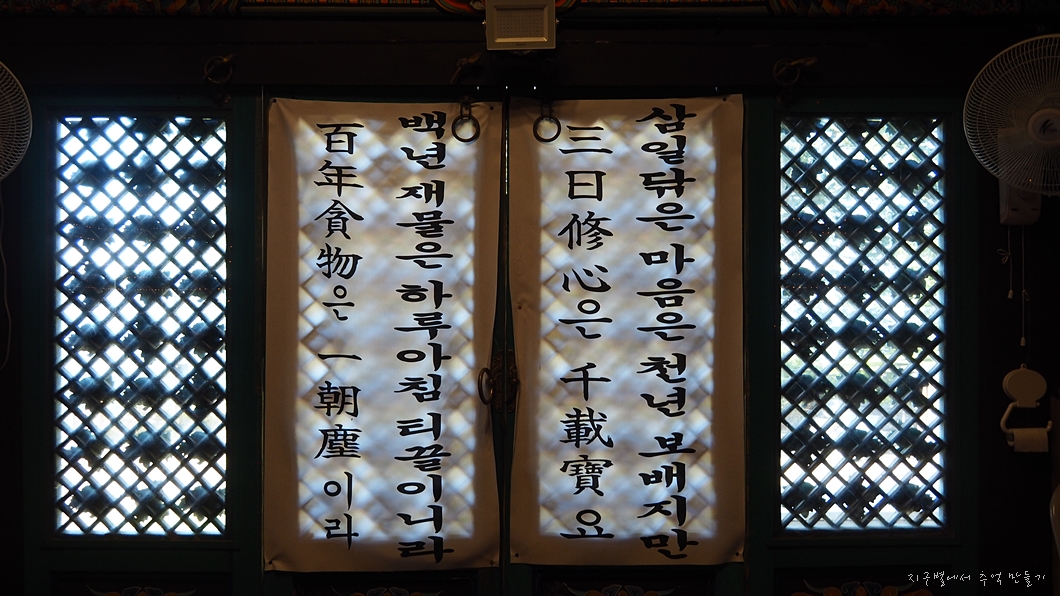 삼일닦은 마음은 천년 보배지만
三日修心은 千載寶요
백년 재물은 하루아침 티끌이니라
百年貪物은 一朝塵이라
지구별에서 추억 만들기